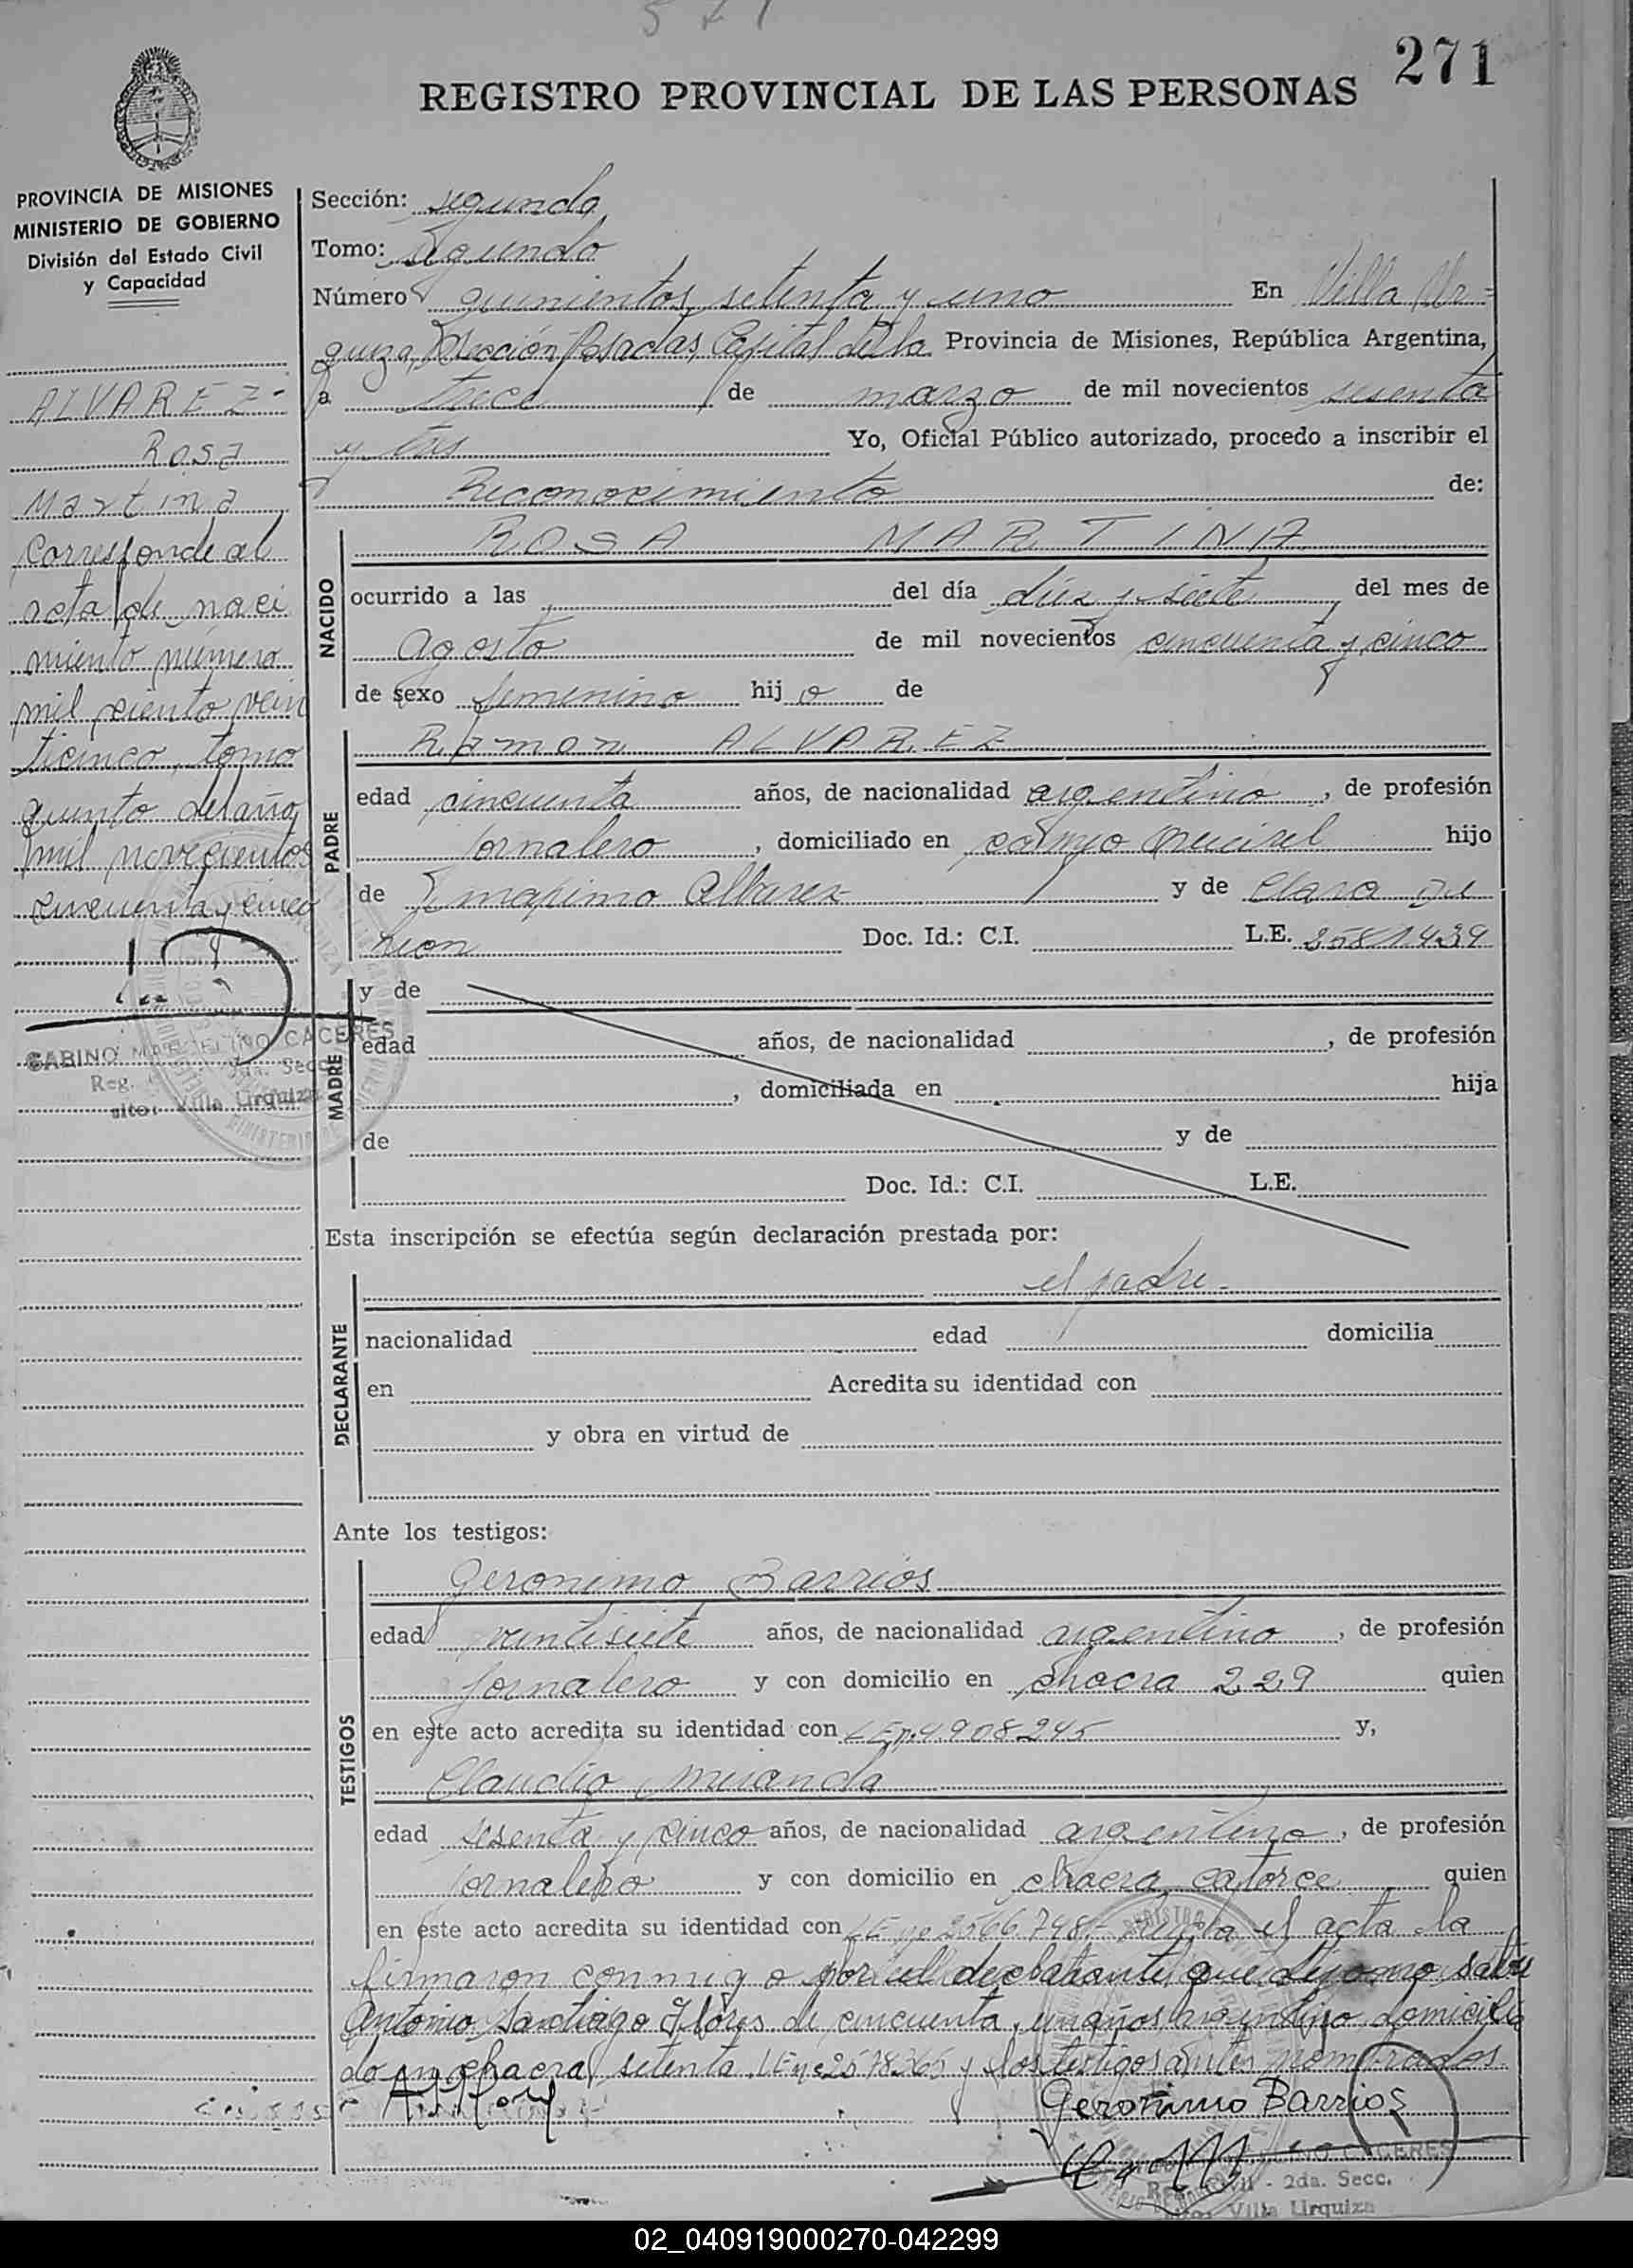 571
271
REGISTRO PROVINCIAL DE LAS PERSONAS
PROVINCIA DE MISIONES
MINISTERIO DE GOBIERNO
División del Estado Civil
y Capacidad
ALVAREZ-
Rosa
Martina
Corresponde al
acta de naci
miento número
mil ciento vein
ticinco, tomo
quinto del año
mil novecientos
cincuenta y cinco
GABINO MARCELINO CACERES
Reg. 2da. Secc.
sito: Villa Urquiza
Sección: segunda
Tomo: Segundo
Número quinientos setenta y uno En Villa Ur=
quiza, Sección Posadas, Capital de la Provincia de Misiones, República Argentina,
a trece de marzo de mil novecientos sesenta
y tres Yo, Oficial Público autorizado, procedo a inscribir el
Reconocimiento de:
NACIDO
ROSA MARTINA
ocurrido a las del día diez y siete del mes de
agosto de mil novecientos cincuenta y cinco
de sexo femenino hija de
PADRE
Ramon ALVAREZ
edad cincuenta años, de nacionalidad argentino, de profesión
jornalero, domiciliado en hijo
de maximo Alvarez y de Clara
Doc. Id.: C.I. L.E. 3581439
MADRE
y de
edad años, de nacionalidad , de profesión
, domiciliada en hija
de y de
Doc. Id.: C.I. L.E.
Esta inscripción se efectúa según declaración prestada por:
DECLARANTE
el padre-
nacionalidad edad domicilia
en Acredita su identidad con
y obra en virtud de
Ante los testigos:
TESTIGOS
Geronimo Barrios
edad veintisiete años, de nacionalidad argentino, de profesión
jornalero y con domicilio en chacra 229 quien
en este acto acredita su identidad con LEnº.4.908245 y,
Claudio Miranda
edad sesenta y cinco años, de nacionalidad argentino, de profesión
jornalero y con domicilio en chacra catorce quien
en este acto acredita su identidad con LE nº 3566.748- el acta la
firmaron conmigo por el declarante que dijo no saber
Antonio Santiago Flores de cincuenta y un años argentino domicilia
do en chacra setenta LEnº2578365 y los testigos antes nombrados
A.S.Flores
Geronimo Barrios
CACERES
Civil - 2da. Secc.
Villa Urquiza
02_040919000270-042299